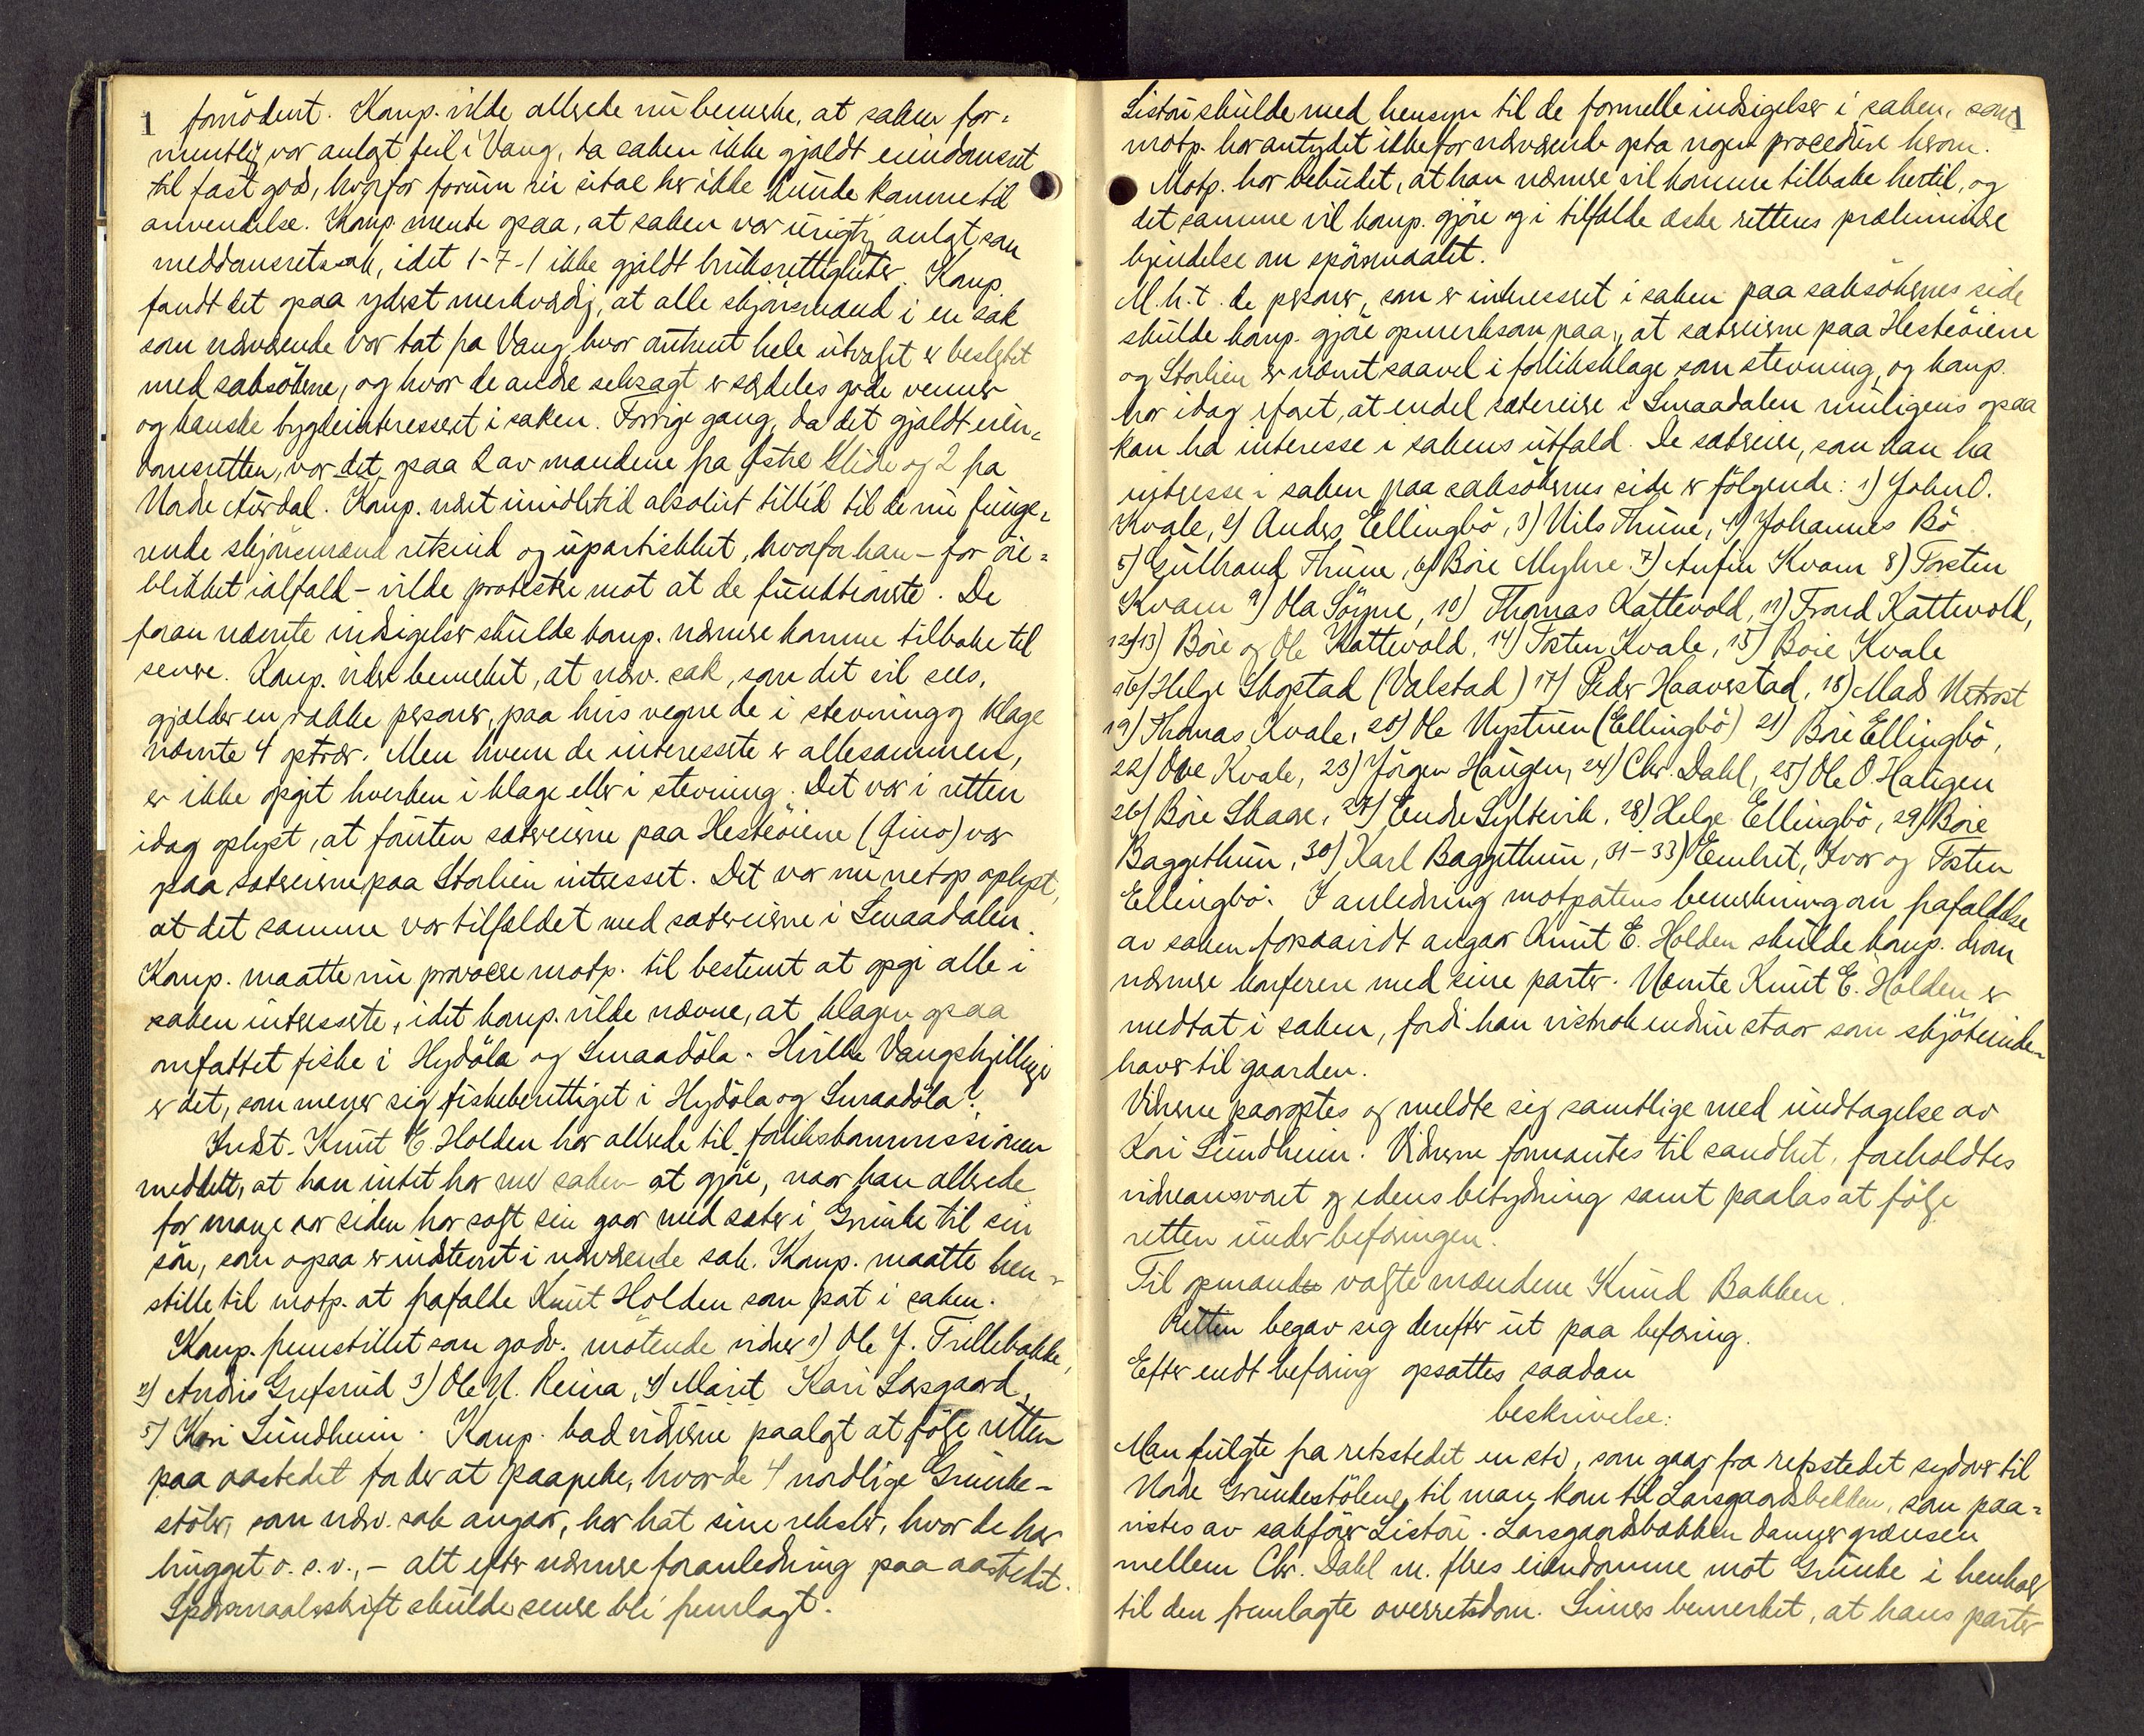 1
fornödent. Komp. vilde allerede nu bemerke, at saken for-
mentlig var anlagt feil i Vang, da saken ikke gjaldt eiendomsret
til fast gods, hvorfor forum rei sitae her ikke kunde komme til
anvendelse. Komp. mente ogsaa, at saken var urigtig anlagt som
meddomsretssak, idet 1-7-1 ikke gjaldt bruksrettigheter. Komp.
fandt det ogsaa yderst merkværdig, at alle skjönsmænd i en sak
som nærværende var tat fra Vang, hvor omtrent hele utvalget er beslegtet
med saksökerne, og hvor de andre selvsagt er særdeles gode venner
og kanske bygdeinteressert i saken. Forrige gang, da det gjaldt eien-
domsretten, var det ogsaa 2 av mændene fra Östre Slidre og 2 fra
Nordre Aurdal. Komp. næret imidlertid absolut tillid til de nu funge-
rende skjönsmænds retsind og upartiskhet, hvorfor han - for öie-
blikket ialfald - vilde protestere mot at de funktionerte. De
foran nævnte indsigelser skulde komp. nærmere komme tilbake til
senere. Komp. vilde bemerket, at nærv. sak, som det vil sees,
gjælder en række personer, paa hvis vegne de i stevning og klage
nævnte 4 optrær. Men hvem de interesserte er allesammen,
er ikke opgit hverken i klage eller i stevning. Det var i retten
idag oplyst, at foruten sætereierne paa Hesteöiene (Gino) var
paa sætereierne paa Storlien interessert. Det var nu netop oplyst,
at det samme var tilfældet med sætereierne i Smaadalen.
Komp. maatte nu provocere motp. til bestemt at opgi alle i
saken interesserte, idet komp. vilde nævne, at klagen ogsaa
omfattet fiske i Hydöla og Smaadöla. Hvilke Vangskjellinger
er det, som mener sig fiskeberettiget i Hydöla og Smaadöla?
Indst. Knut E. Holden har allerede til forlikskommissionen
meddelt, at han intet har med saken at gjöre, naar han allerede
for mange aar siden har solgt sin gaar med sæter i Grunke til sin
sön, som ogsaa er indstevnt i nærværende sak. Komp. maatte hen-
stille til motp. at frafalde Knut Holden som part i saken.
Komp. fremstillet som godv. mötende vidner 1) Ole J. Trillebakke,
2) Andris Grefsrud 3) Ole N. Reina, 4) Marit Kari Larsgaard,
5) Kari Sundheim. Komp. bad vidnerne paalagt at fölge retten
paa aastedet for der at paapeke, hvor de 4 nordlige Grunke-
stöler, som nærv. sak angaar, har hat sine rekster, hvor de har
hugget o.s.v., - alt efter nærmere foranledning paa aastedet.
Spörsmaalsskrift skulde senere bli fremlagt.
1
Listou skulde med hensyn til de formelle indsigelser i saken, som
motp. har antydet ikke for nærværende opta nogen procedure herom.
Motp. har bebudet, at han nærmere vil komme tilbake hertil, og
det samme vil komp. gjöre og i tilfælde æske rettens præliminære
kjendelse om spörsmaalet.
M.h.t. de personer, som er interessert i saken paa saksökernes side
skulde komp. gjöre opmerksom paa, at sætereierne paa Hesteöiene
og Storlien er nævnt saavel i forliksklage som stevning, og komp.
har idag erfaret, at endel sætereiere i Smaadalen muligens ogsaa
kan ha interesse i sakens utfald. De sætereiere, som kan ha
interesse i saken paa saksökernes side er fölgende: 1) John O.
Kvale, 2) Anders Ellingbö, 3) Nils Thune, 4) Johannes Bö
5) Gulbrand Thune, 6) Boie Myhre 7) Anfin Kvam 8) Torsten
Kvam 9) Ola Söyne, 10) Thomas Kattevold, 11) Trond Kattevold,
12) 13) Böie og Ole Kattevold, 14) Tosten Kvale, 15) Boie Kvale
16) Helge Skogstad (Valstad) 17) Peder Haaverstad, 18) Mads Netrost
19) Thomas Kvale, 20) Ole Nystuen (Ellingbö) 21) Böie Ellingbö,
22) Ove Kvale, 23) Jörgen Haugen, 24) Chr. Dahl, 25) Ole O. Haugen
26) Böie Skare, 27) Endre Syltevik, 28) Helge Ellingbö, 29) Boie
Baggethun, 30) Karl Baggethun, 31-33) Eembrit, Ivar og Tosten
Ellingbö. I anledning motpartens bemerkning om frafaldelse
av saken forsaavidt angaar Knut E. Holden skulde komp. herom
nærmere konferere med sine parter. Nævnte Knut E. Holden er
medtat i saken, fordi han vistnok endnu staar som skjöteinde-
haver til gaarden.
Vidnerne paaroptes og meldte sig samtlige med undtagelse av
Kari Sundheim. Vidnerne formantes til sandhet, foreholdtes
vidneansvaret og edens betydning samt paalas at fölge
retten under befaringen.
Til opmand valgte mændene Knud Bakken.
Retten begav sig derefter ut paa befaring.
Efter endt befaring opsattes saadan
beskrivelse:
Man fulgte fra retsstedet en sti, som gaar fra retsstedet sydover til
Nordre Grunkestölene, til man kom til Larsgaardsbekken, som paa-
vistes av sakförer Listou. Larsgaardsbækken danner grænsen
mellem Chr. Dahl m. fleres eiendomme mot Grunke i henhold
til den fremlagte overretsdom. Simers bemerket, at hans parter